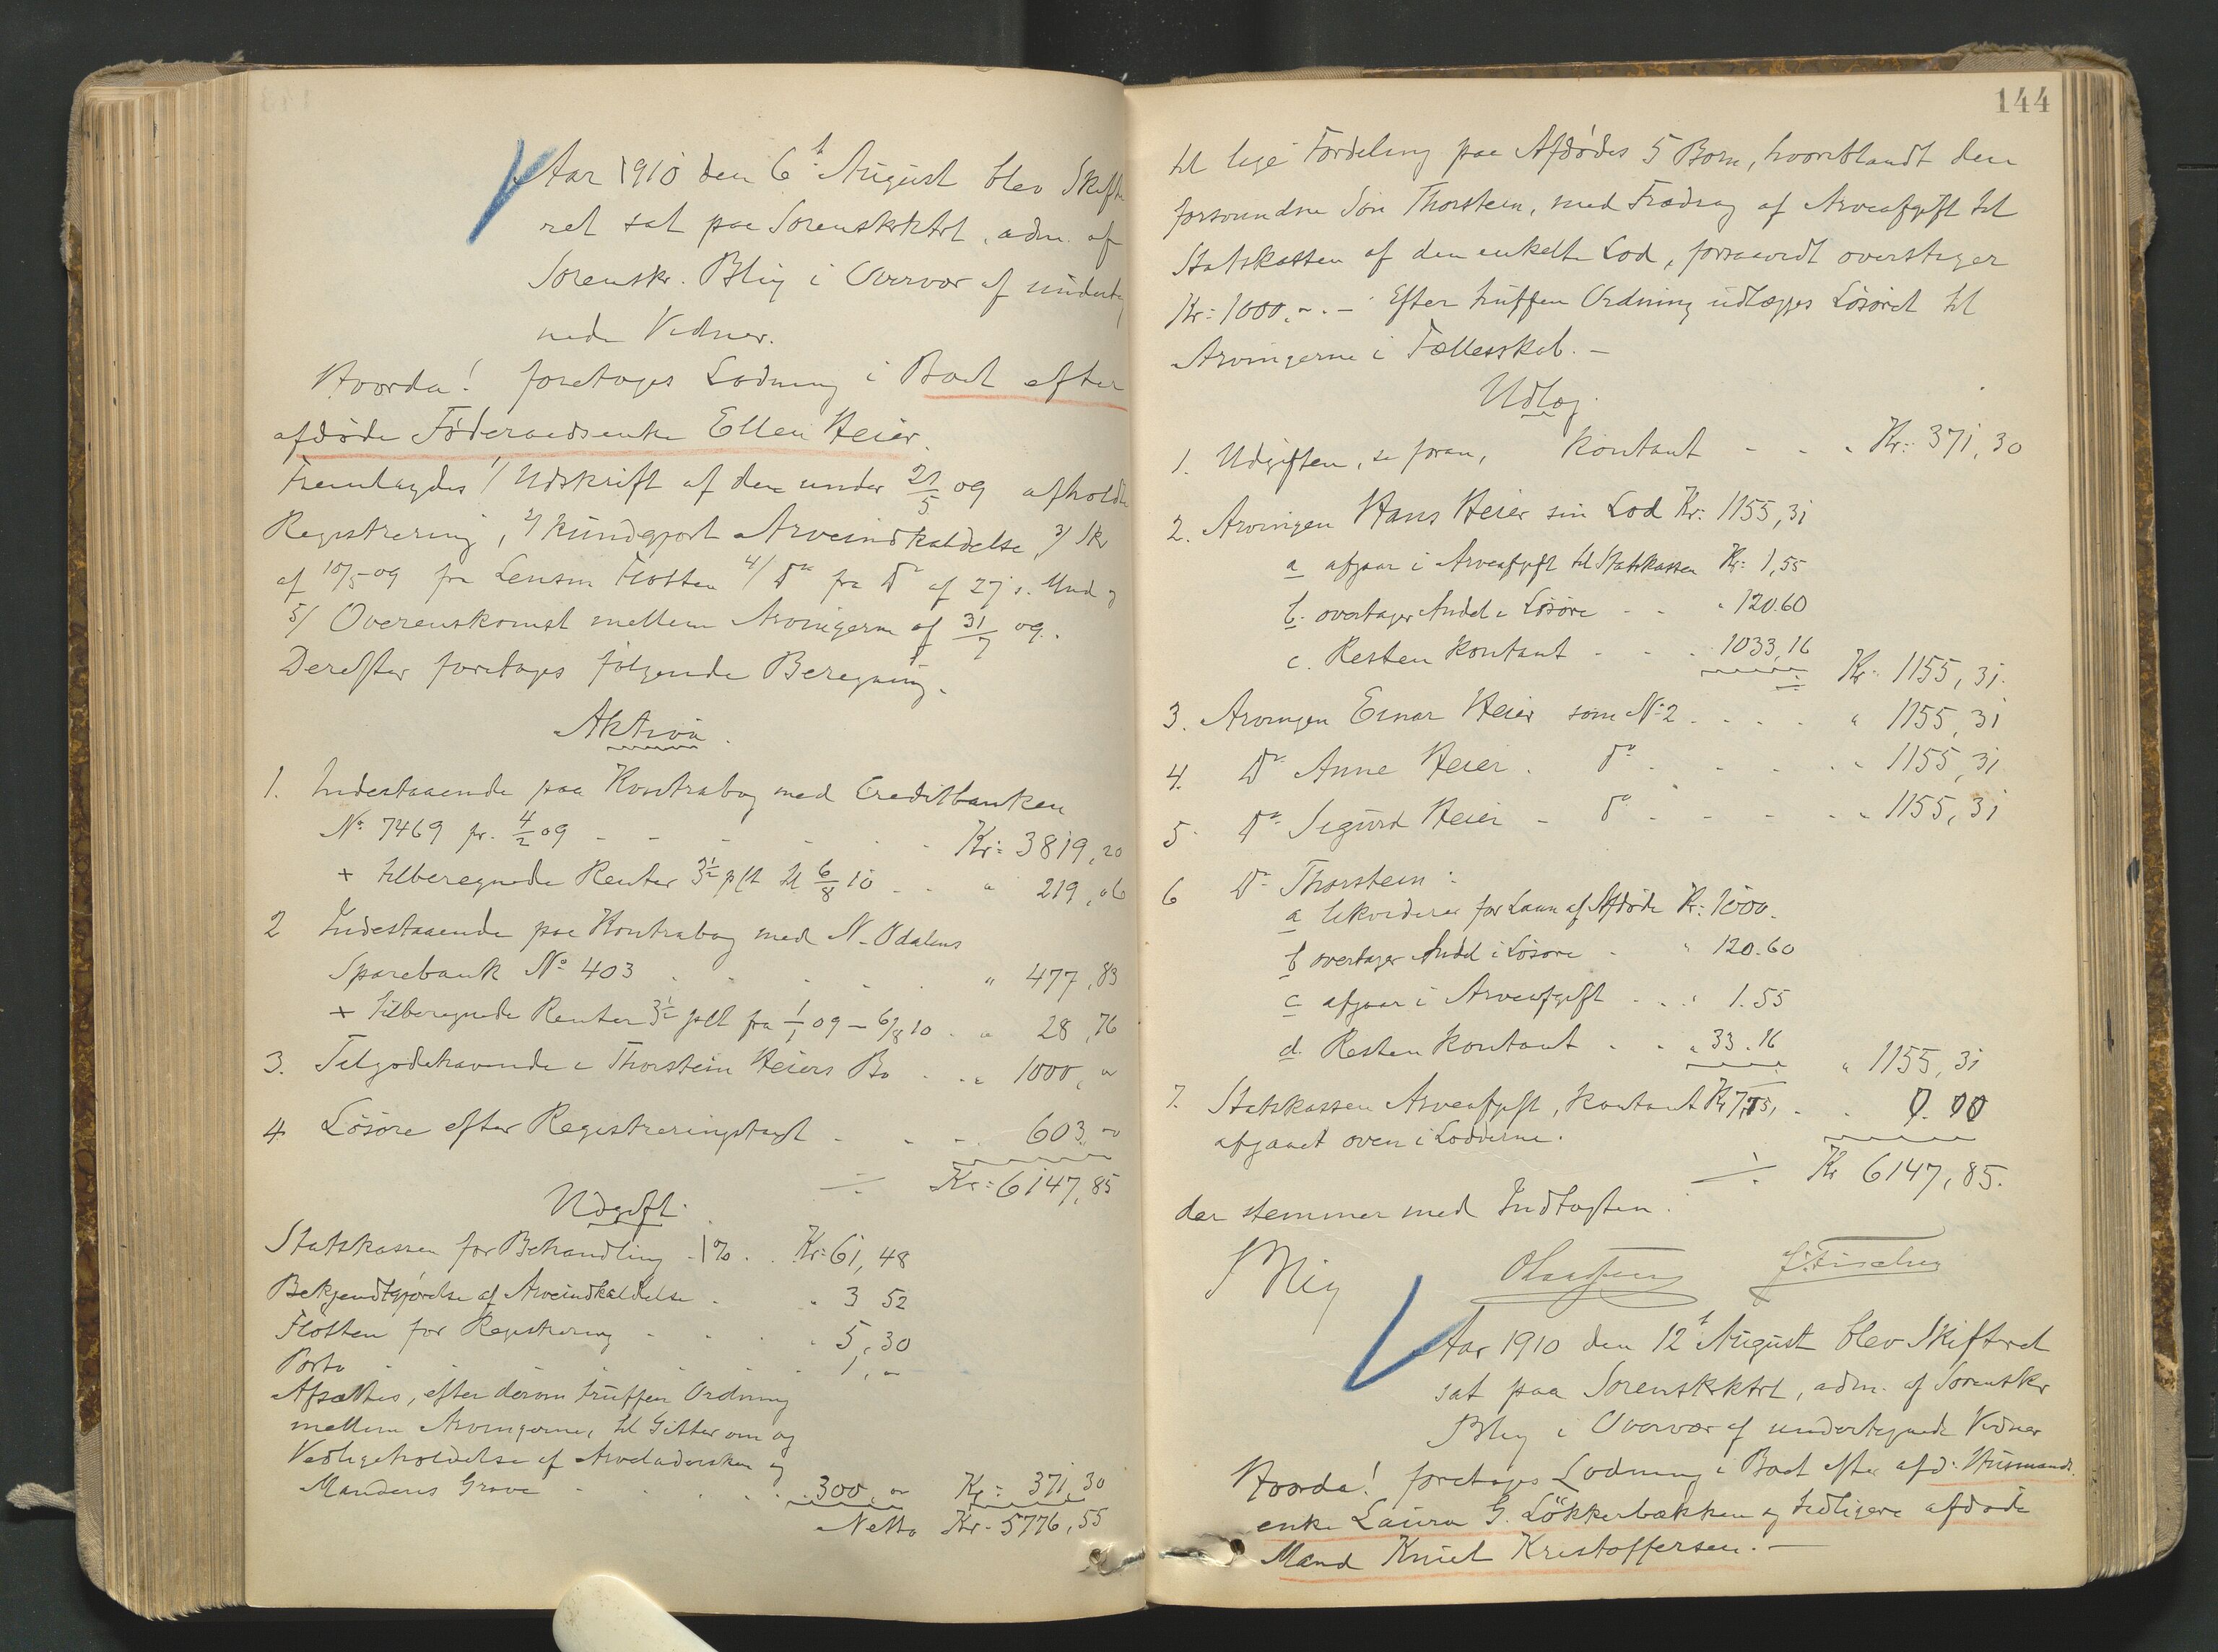 Aar 1910 den 6t August blev Skifte
ret sat paa Sorenskrktrt, adm. af
Sorenskr. Bley i Overvær af underteg
nede Vidner.
Hvorda! foretages Lodning i Boet efter
afdøde Føderaadsenke Ellen Heier.
Fremlagdes 1/ Udskrift af den under 21/5 09 afholdte
Registrering, 2/ kundgjort Arveindkaldelse, 3/ Skr
af 10/5 09 fra Lensm Flotten 4/ Do fra Do af 27 s. Mnd og
5/ Overenskomst mellem Arvingerne af 31/7 09.
Derefter foretages følgende Beregning.
Aktiva.
1. Indestaaende paa Kontrabog med Creditbanken
No 7469 pr. 4/2 09 - - - - Kr: 3819,20
+ tilberegnede Renter 3½ pct til 6/8 10 - - " 219,06
2 Indestaaende paa Kontrabog med N. Odalens
Sparebank No 403 . . . . " 477,83
+ tilberegnede Renter 3½ pct fra 1/1 09 - 6/8 10 . " 28,76
3. Tilgodehavende i Thorstein Heiers Bo . . " 1000, "
4 Løsøre efter Registreringstaxt - - - 603 "
÷ Kr: 6147,85
Udgift.
Statskassen for Behandling 1% . . Kr: 61,48
Bekjendtgjørelse af Arveindkaldelse . " 3 52
Flotten for Registrering - . . . 5,30
Porto - . . . . . 1, "
Afsættes, efter derom truffen Ordning
mellem Arvingerne, til Gitter om og
Vedligeholdelse af Arveladersken og
Mandens Grave - . . . . 300, " Kr: 371,30
Netto Kr. 5776,55
144
til lige Fordeling paa Afdødes 5 Børn, hvoriblandt den
forsvundne Søn Thorstein, med Fradrag af Arveafgift til
Statskassen af den enkelte Lod, forsaavidt overstiger
Kr: 1000.-.- Efter truffen Ordning udlægges Løsøret til
Arvingerne i Fællesskab. -
Udlæg.
1. Udgiften, se foran, kontant - - - Kr: 371,30
2. Arvingen Hans Heier sin Lod Kr: 1155,31
a afgaar i Arveafgift til Statskassen Kr: 1,55
b. overtager Andel i Løsøre - - " 120.60
c. Resten kontant - - . 1033,16 Kr. 1155,31.
3. Arvingen Einar Heier som No 2 . . . . " 1155,31
4. Do Anne Heier . do . - - . . " 1155,31
5. Do Sigurd Heier - do . - - . . " 1155,31
6 Do Thorstein:
a likviderer for Laan af Afdøde Kr: 1000.
b overtager Andel i Løsøre . " 120.60
c afgaar i Arveafgift . . " 1.55
d. Resten kontant . . " 33.16 " 1155,31
7. Statskassen Arveafgift, kontant Kr 7,75, . . 0.00
afgaaet oven i Lodderne.
÷ Kr 6147,85.
der stemmer med Indtægten.
Bley
Aar 1910 den 12t August blev Skifteret
sat paa Sorenskrktrt, adm. af Sorenskr
Bley i Overvær af undertegnede Vidner
Hvorda! foretages Lodning i Boet efter afd. Husmands
enke Laura G. Løkkerbækken og tidligere afdøde
Mand Knut Kristoffersen. -